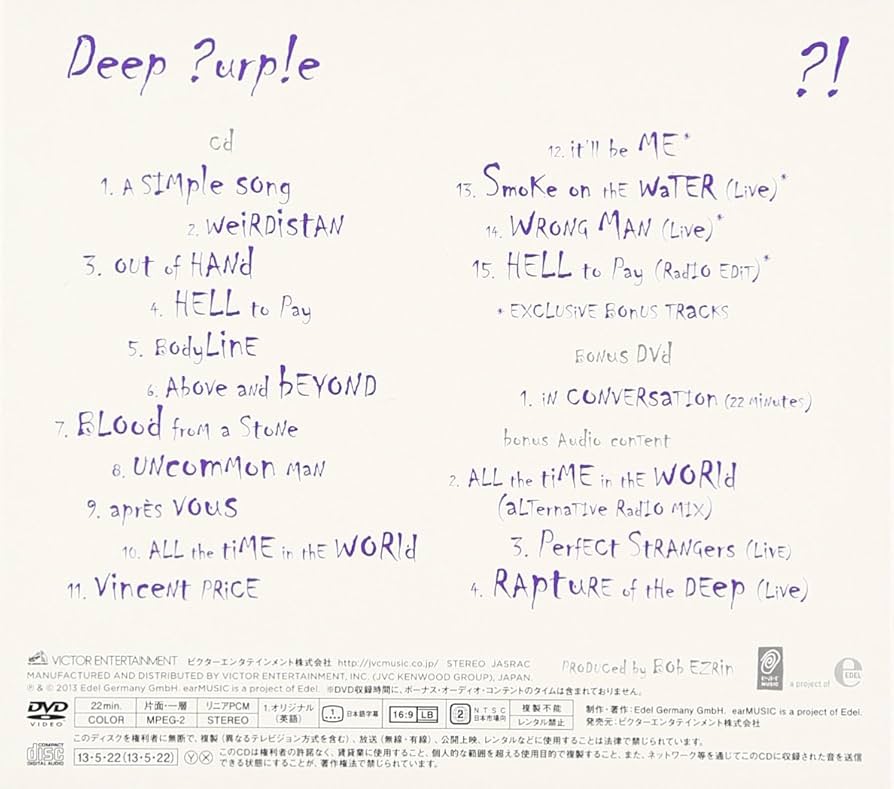 Deep ?urp!e
?!
cd
1. A SIMple song
2. WeiRDistAN
3. out of HANd
4. HELL to Pay
5. BodyLinE
6. Above and bEYOND
7. BLood from a StoNe
8. UNcomMon MaN
9. aprÈs vous
10. ALL the tiME in thE WORld
11. VinceNt PRiCE
12. it'll be ME*
13. SmoKe on thE WaTER (Live)*
14. WRONG MAN (Live)*
15. HELL to Pay (RadIO EDiT)*
* EXCLUSiVE BonUS TRacKS
BonUS DVd
1. iN CONVERSaTIon (22 Minutes)
bonus Audio conTenT
2. ALL the tiME in thE WORld
(aLTernaTIve RadIO MIX)
3. PerfECT StRANGers (LivE)
4. RAptuRE of tHe DEep (Live)
VICTOR ENTERTAINMENT ビクターエンタテインメント株式会社 http://jvcmusic.co.jp/ STEREO JASRAC
MANUFACTURED AND DISTRIBUTED BY VICTOR ENTERTAINMENT, INC. (JVC KENWOOD GROUP), JAPAN.
℗ & © 2013 Edel Germany GmbH. earMUSIC is a project of Edel. ※DVD収録時間に、ボーナス・オーディオ・コンテントのタイムは含まれておりません。
PRODUCEd by BOb EZRin
MUSIC
a project of
EDEL
DVD VIDEO
22 min. 片面・一層 リニアPCM
COLOR MPEG-2 STEREO
1.オリジナル (英語)
1 日本語字幕
16:9 LB
2 NTSC 日本市場向
複製不能 レンタル禁止
制作・著作：Edel Germany GmbH. earMUSIC is a project of Edel.
発売元：ビクターエンタテインメント株式会社
このディスクを権利者に無断で、複製（異なるテレビジョン方式を含む）、放送（無線・有線）、公開上映、レンタルなどに使用することは法律で禁じられています。
COMPACT disc DIGITAL AUDIO
13·5·22(13·5·22) Y X
このCDは権利者の許諾なく、賃貸業に使用すること、個人的な範囲を超える使用目的で複製すること、また、ネットワーク等を通じてこのCDに収録された音を送信
できる状態にすることが、著作権法で禁じられています。